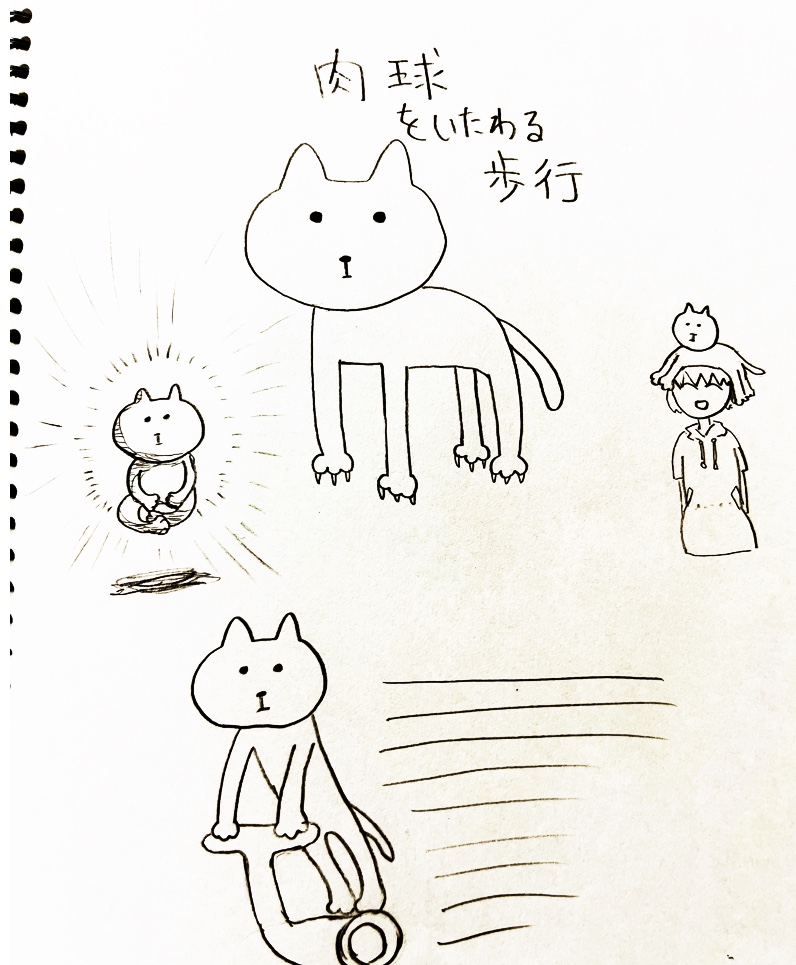 肉球
をいたわる
歩行